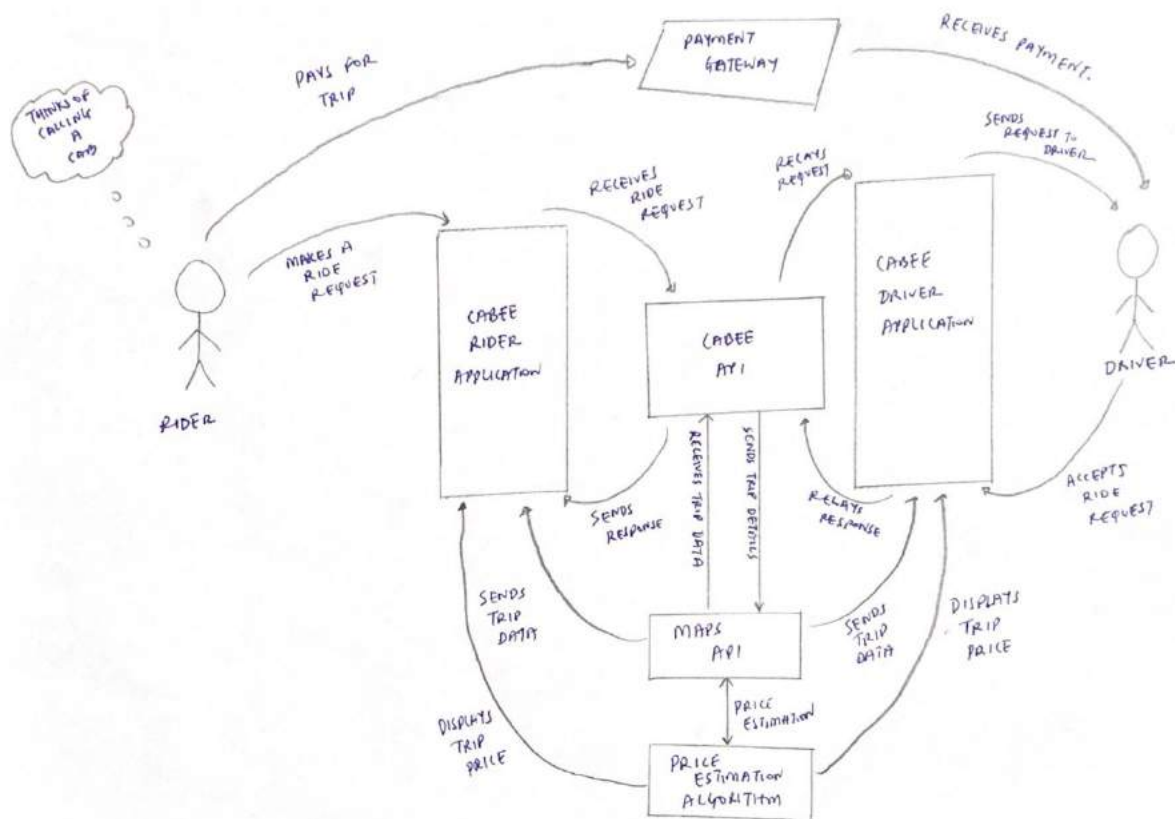 THINKS OF
CALLING
A
CAB
PAYS FOR
TRIP
PAYMENT
GATEWAY
RECEIVES PAYMENT.
SENDS
REQUEST TO
DRIVER
RECEIVES
RIDE
REQUEST
RELAYS
REQUEST
MAKES A
RIDE
REQUEST
CABEE
RIDER
APPLICATION
CABEE
API
CABEE
DRIVER
APPLICATION
RIDER
DRIVER
SENDS
RESPONSE
RECEIVES TRIP DATA
SENDS TRIP DETAILS
RELAYS
RESPONSE
ACCEPTS
RIDE
REQUEST
SENDS
TRIP
DATA
MAPS
API
SENDS
TRIP
DATA
DISPLAYS
TRIP
PRICE
PRICE
ESTIMATION
DISPLAYS
TRIP
PRICE
PRICE
ESTIMATION
ALGORITHM